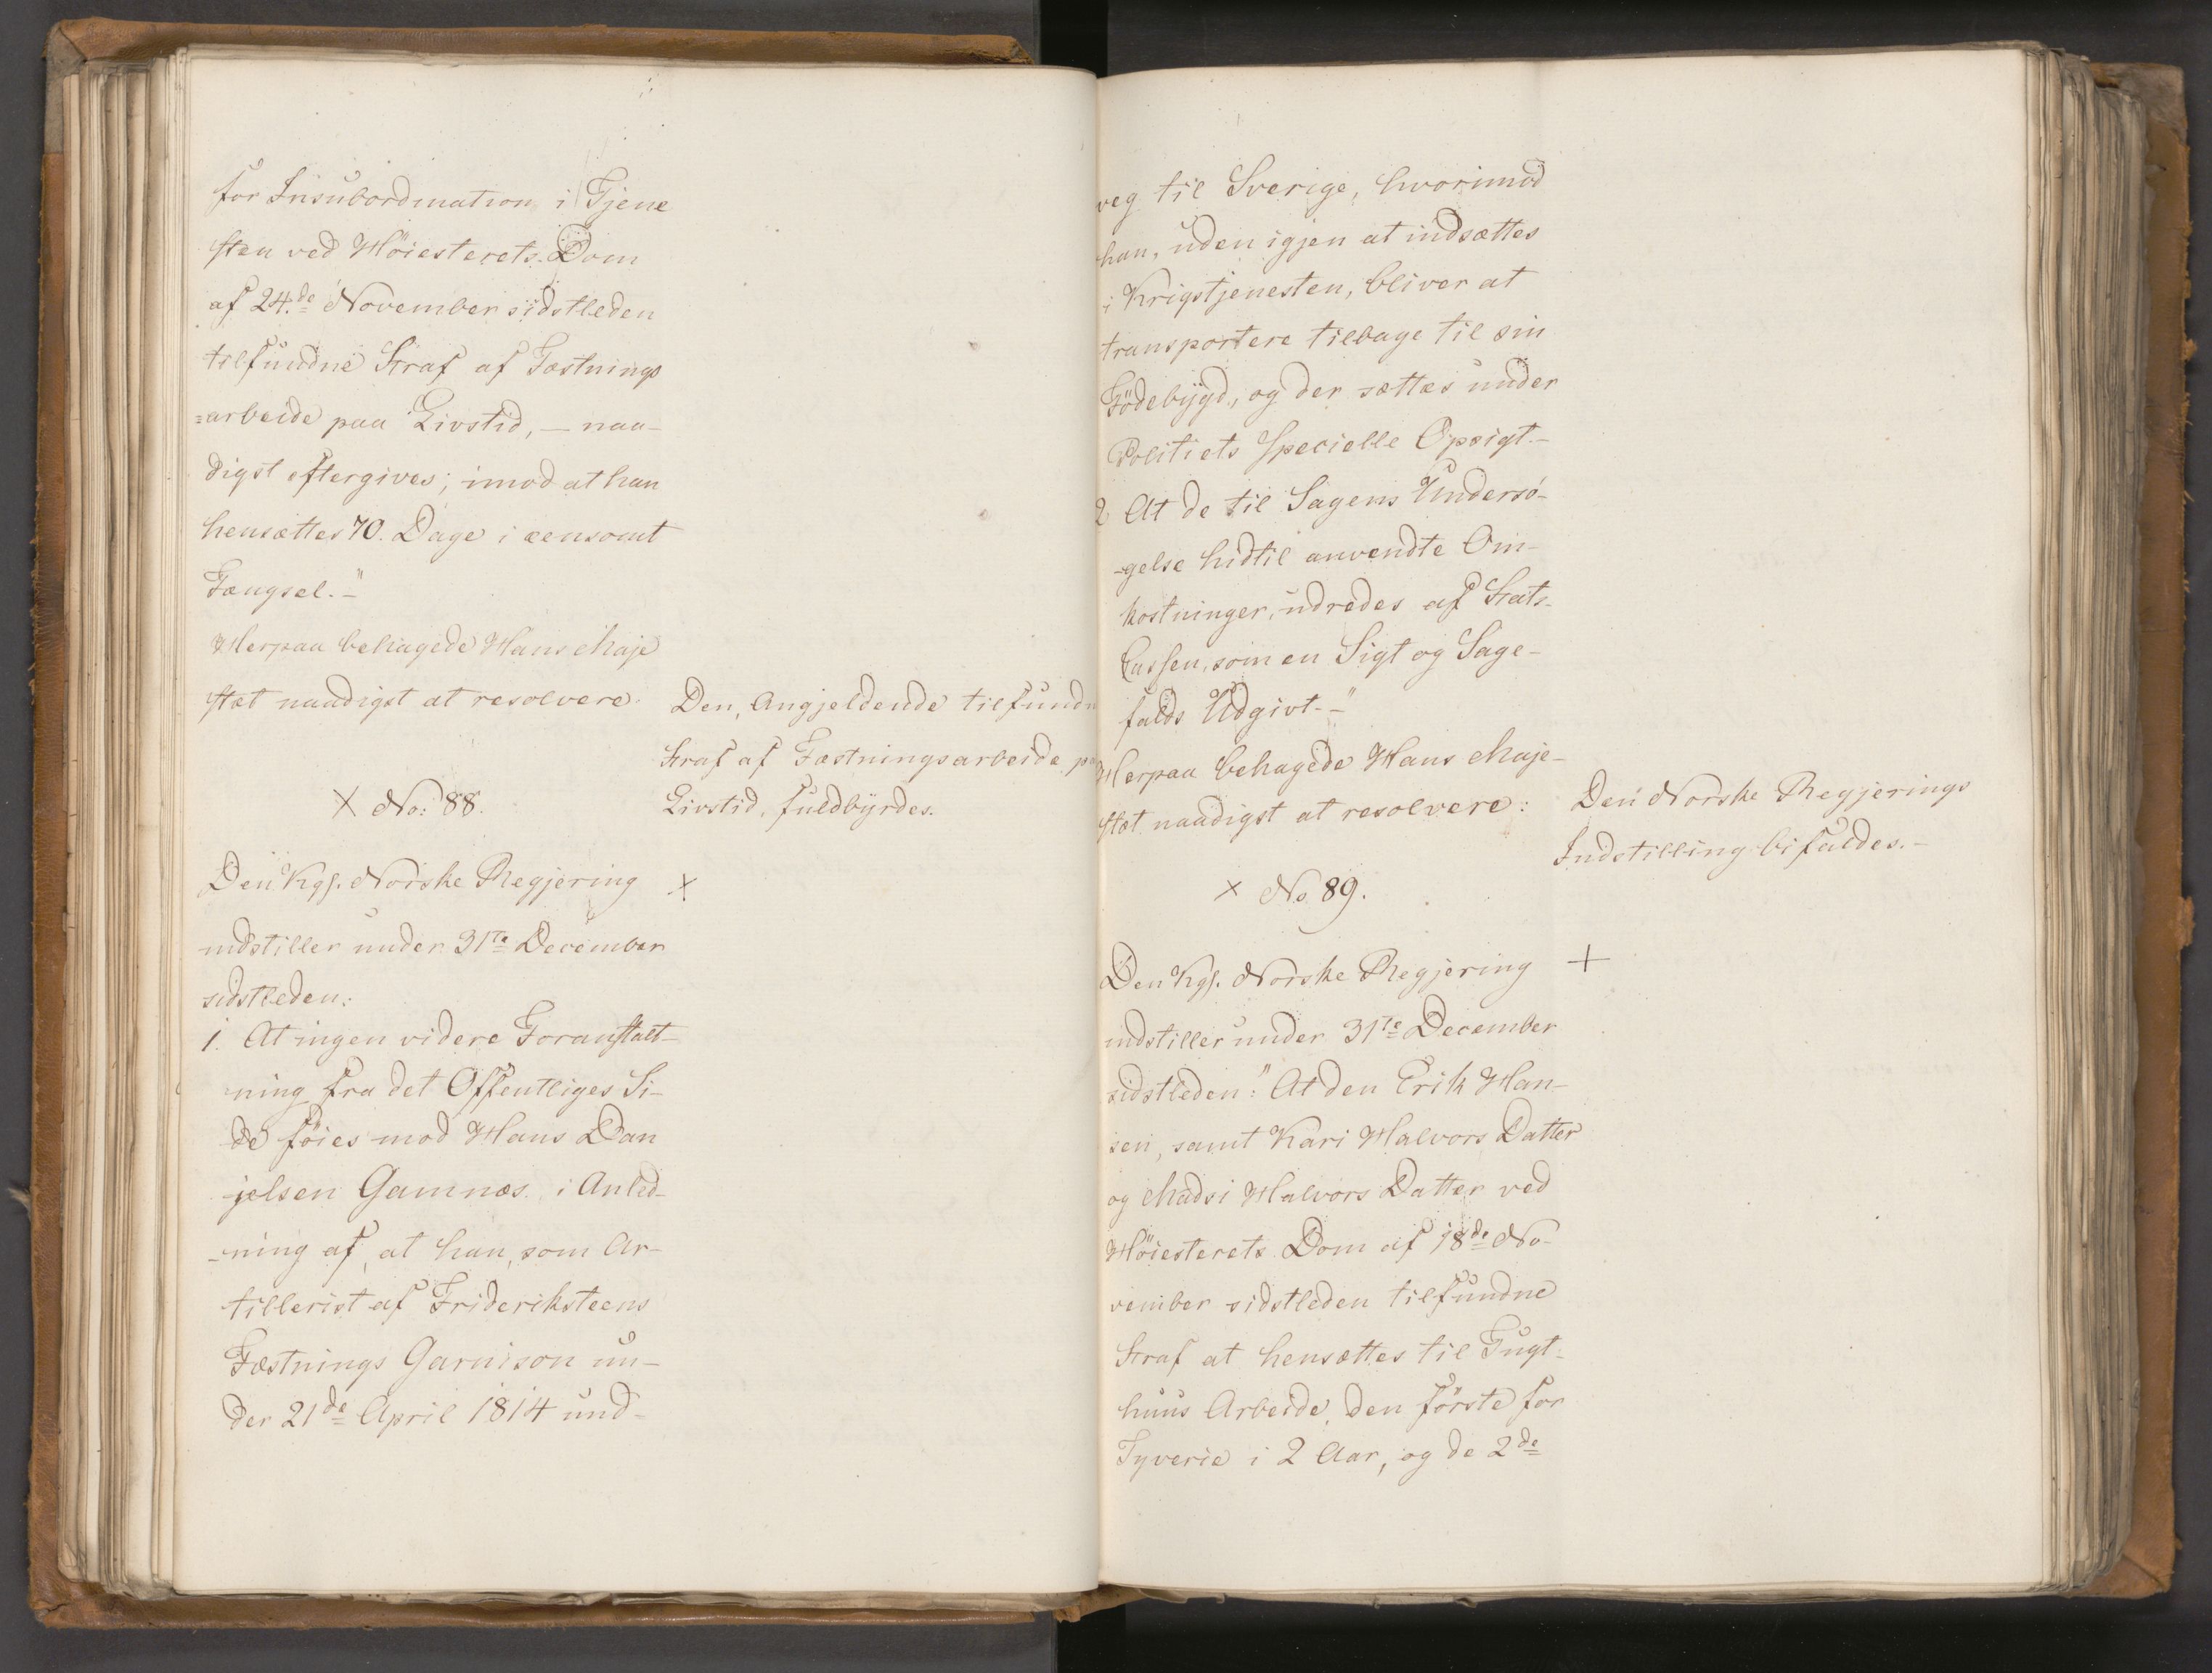 for Insubordination i Tjene
sten ved Höiesterets Dom
af 24.de November sidstleden
tilfundne Straf af Fæstnings
=arbeide paa Livstid, — naa-
digst eftergives; imod at han
hensættes 70. Dage i eensomt
Fængsel.-"
Herpaa behagede Hans Maje
stæt naadigst at resolvere.
Den, Angjeldende tilfundn
Straf af Fæstningsarbeide p
Livstid, fuldbyrdes.
X No: 88.
Den Kgl. Norske Regjering X
indstiller under 31te December
sidstleden:
1. At ingen videre Foranstalt-
ning fra det Offentliges Si-
de föies mod Hans Dan
jelsen Gamnæs i Anled-
-ning af, at han, som Ar-
tillerist af Frideriksteens
Fæstnings Garnison un-
der 21de April 1814 und-
veg til Sverige, hvorimod
han, uden igjen at indsættes
i Krigstjenesten, bliver at
transportere tilbage til sin
Födebygd, og der sættes under
Politiets specielle Opsigt.-
2 At de til Sagens Undersö-
-gelse hidtil anvendte Om-
kostninger, udredes af Stats-
Cassen, som en Sigt og Sage-
falds Udgivt.-"
Herpaa behagede Hans Maje-
stæt naadigst at resolvere:
Den Norske Regjerings
Indstilling bifaldes.-
X No 89.
Den Kgl. Norske Regjering +
indstiller under 31te December
sidstleden: "At den Erik Han-
sen, samt Kari Halvors Datter
og Madsi Halvors Datter ved
Höiesterets Dom af 18de No-
vember sidstleden tilfundne
Straf at hensættes til Tugt-
huus Arbeide, den förste for
Tyverie i 2 Aar, og de 2de